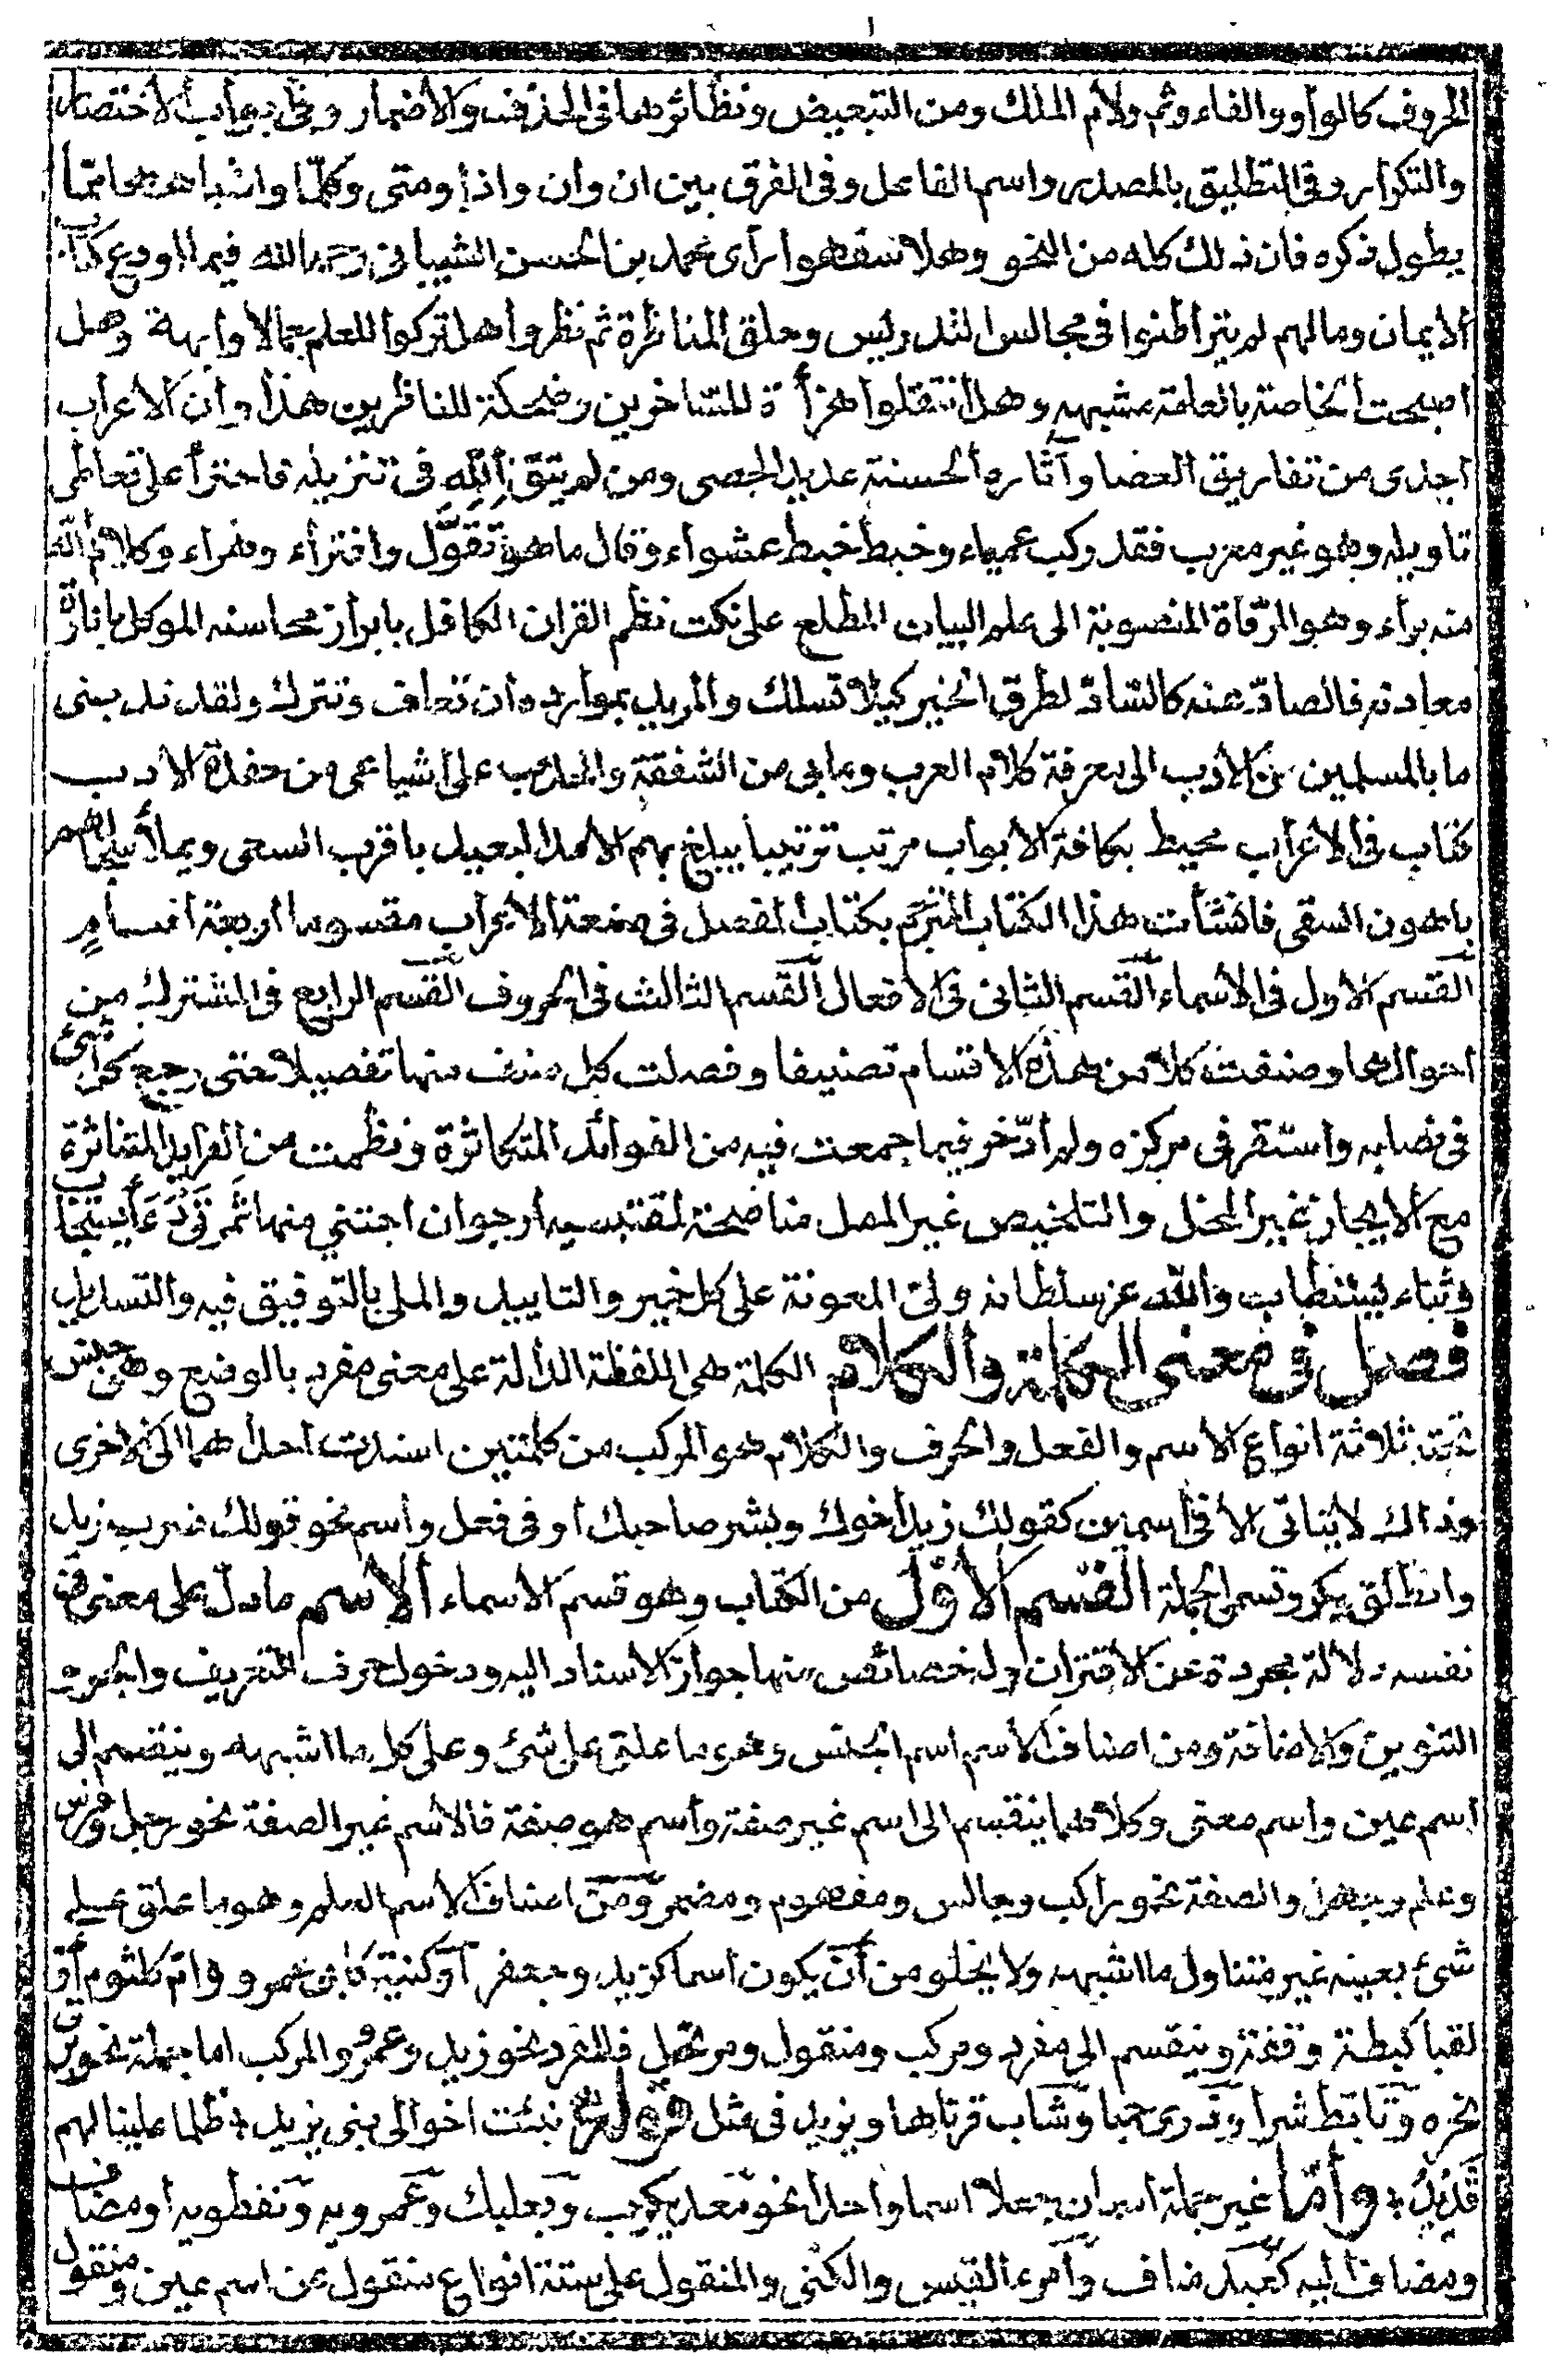 الحروف كالواو والفاء وثم ولام الملك ومن التبعيض ونظائرهما فى الحذف والاضمار وفى ابواب الاختصار
والتكرار وفى التطليق بالمصدر واسم الفاعل وفى الفرق بين ان وأن واذا ومتى وكلما واشباهها مما
يطول ذكره فان ذلك كله من النحو وهلا سفهوا رأى محمد بن الحسن الشيبانى رحمه الله فيما اودع كتاب
الايمان ومالهم لم يتراطنوا فى مجالس التدريس وحلق المناظرة ثم نظروا هل تركوا للعلم جمالا وابهة وهل
اصبحت الخاصة بالعامة مشبهه وهل انتقلوا هزأة للساخرين وضحكة للناظرين هذا وان الاعراب
اجدى من تفاريق العصا وآثاره الحسنة عديد الحصى ومن لم يتق الله فى تنزيله فاجترأ على تعاطى
تاويله وهو غير معرب فقد ركب عمياء وخبط خبط عشواء وقال ما هو تقوّل وافتراء وهراء وكلام الله
منه براء وهو المرقاة المنصوبة الى علم البيان المطلع على نكت نظم القران الكافل بابراز محاسنه الموكل باثارة
معادنه فالصادّ عنه كالسادّ لطرق الخير كيلا تسلك والمريد بموارده ان تعاف وتترك ولقد ندبنى
ما بالمسلمين من الارب الى معرفة كلام العرب وما بى من الشفقة والحدب على اشياعى من حفدة الادب
كتاب فى الاعراب محيط بكافة الابواب مرتب ترتيبا يبلغ بهم الامد البعيد باقرب السعى ويملأ سجالهم
باهون السقى فانشأت هذا الكتاب المترجم بكتاب المفصل فى صنعة الاعراب مقسوما اربعة اقسام
القسم الاول فى الاسماء القسم الثانى فى الافعال القسم الثالث فى الحروف القسم الرابع فى المشترك من
احوالها وصنفت كلا من هذه الاقسام تصنيفا وفصلت كل صنف منها تفصيلا حتى رجع كل شئ
فى نصابه واستقر فى مركزه ولم ادّخر فيما جمعت فيه من الفوائد المتكاثرة ونظمت من الفرايد المتناثرة
مع الايجاز غير المخل والتلخيص غير الممل مناصحة لمقتبسيه ارجو ان اجتنى منها ثمرتى دعاء يستجاب
وثناء يستطاب والله عز سلطانه ولى المعونة على كل خير والتاييد والملى بالتوفيق فيه والتسديد
فصل فى معنى الكلمة والكلام الكلمة هى اللفظة الدالة على معنى مفرد بالوضع وهى جنس
تحته ثلاثة انواع الاسم والفعل والحرف والكلام هو المركب من كلمتين اسندت احداهما الى الاخرى
وذاك لا يتاتى الا فى اسمين كقولك زيد اخوك وبشر صاحبك او فى فعل واسم نحو قولك ضرب زيد
وانطلق بكر وتسمى الجملة القسم الاول من الكتاب وهو قسم الاسماء الاسم مادل على معنى فى
نفسه دلالة مجردة عن الاقتران وله خصائص منها جواز الاسناد اليه ودخول حرف التعريف والجر و
التنوين والاضافة ومن اصناف الاسم اسم الجنس وهو ما علق على شئ وعلى كل ما اشبهه وينقسم الى
اسم عين واسم معنى وكلاهما ينقسم الى اسم غير صفة واسم هو صفة فالاسم غير الصفة نحو رجل وفرس
وعلم وجهل والصفة نحو راكب وجالس ومفهوم ومضمر ومن اصناف الاسم العلم وهو ما علق على
شئ بعينه غير متناول ما اشبهه ولا يخلو من أن يكون اسما كزيد وجعفر او كنية كابى عمرو وام كلثوم أو
لقبا كبطة وقفة وينقسم الى مفرد ومركب ومنقول ومرتجل فالمفرد نحو زيد وعمرو والمركب اما جملة نحو برق
نحره وتابط شرا وذرى حبا وشاب قرناها ويزيد فى مثل قوله شعر نبئت اخوالى بنى يزيد ؛ ظلما علينا لهم
فديد ؛ واما غير جملة اسمان جعلا اسما واحدا نحو معديكرب وبعلبك وعمرويه ونفطويه او مضاف
ومضاف اليه كعبد مناف وامرء القيس والكنى والمنقول على ستة انواع منقول عن اسم عين ومنقول